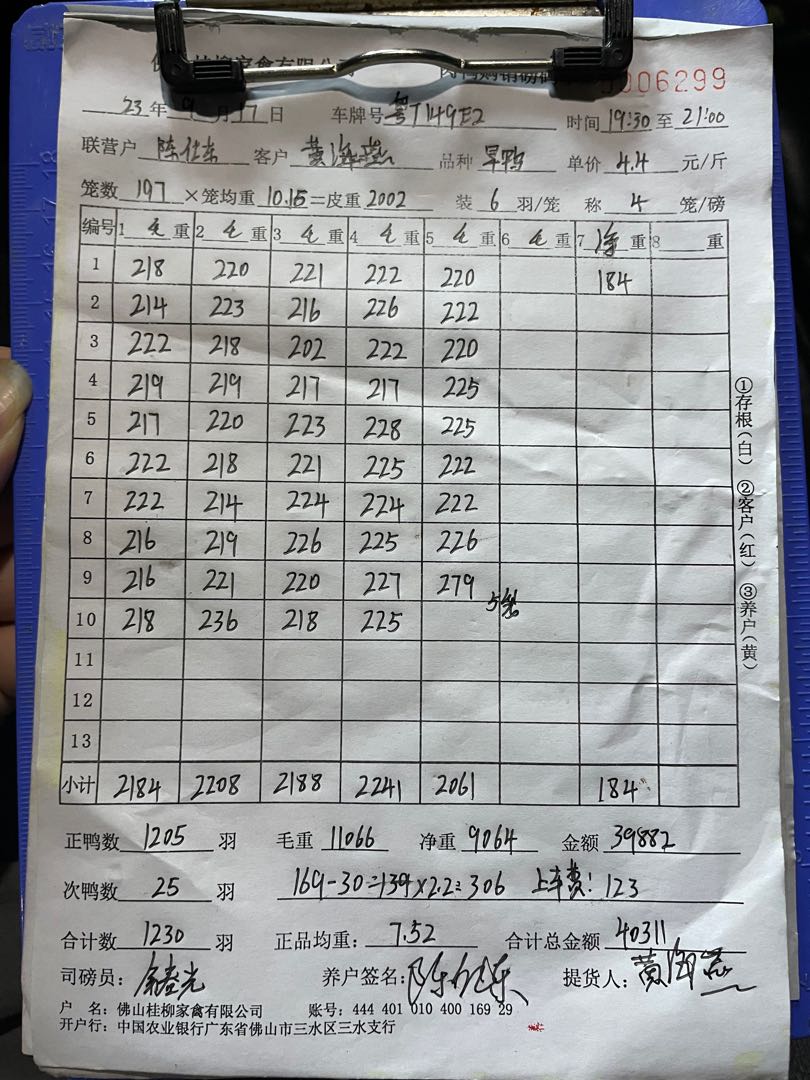 佛山桂柳家禽有限公司 肉鸭购销磅码 0006299
23年9月17日 车牌号粤T149E2 时间19:30至21:00
联营户 陈仕东 客户 黄海燕 品种 旱鸭 单价 4.4 元/斤
笼数 197 ×笼均重 10.15=皮重 2002 装 6 羽/笼 称 4 笼/磅
编号 1毛重 2毛重 3毛重 4毛重 5毛重 6毛重 7净重 8重
1 218 220 221 222 220 184
2 214 223 216 226 222
3 222 218 202 222 220
4 219 219 217 217 225
5 217 220 223 228 225
6 222 218 221 225 222
7 222 214 224 224 222
8 216 219 226 225 226
9 216 221 220 227 279 5笼
10 218 236 218 225
11
12
13
小计 2184 2208 2188 2241 2061 184
正鸭数 1205 羽 毛重 11066 净重 9064 金额 39882
次鸭数 25 羽 169-30=139×2.2=306 上车费! 123
合计数 1230 羽 正品均重: 7.52 合计总金额 40311
司磅员: 养户签名: 陈仕东 提货人: 黄海燕
户 名: 佛山桂柳家禽有限公司 账号: 444 401 010 400 169 29
开户行: 中国农业银行广东省佛山市三水区三水支行
①存根(白) ②客户(红) ③养户(黄)